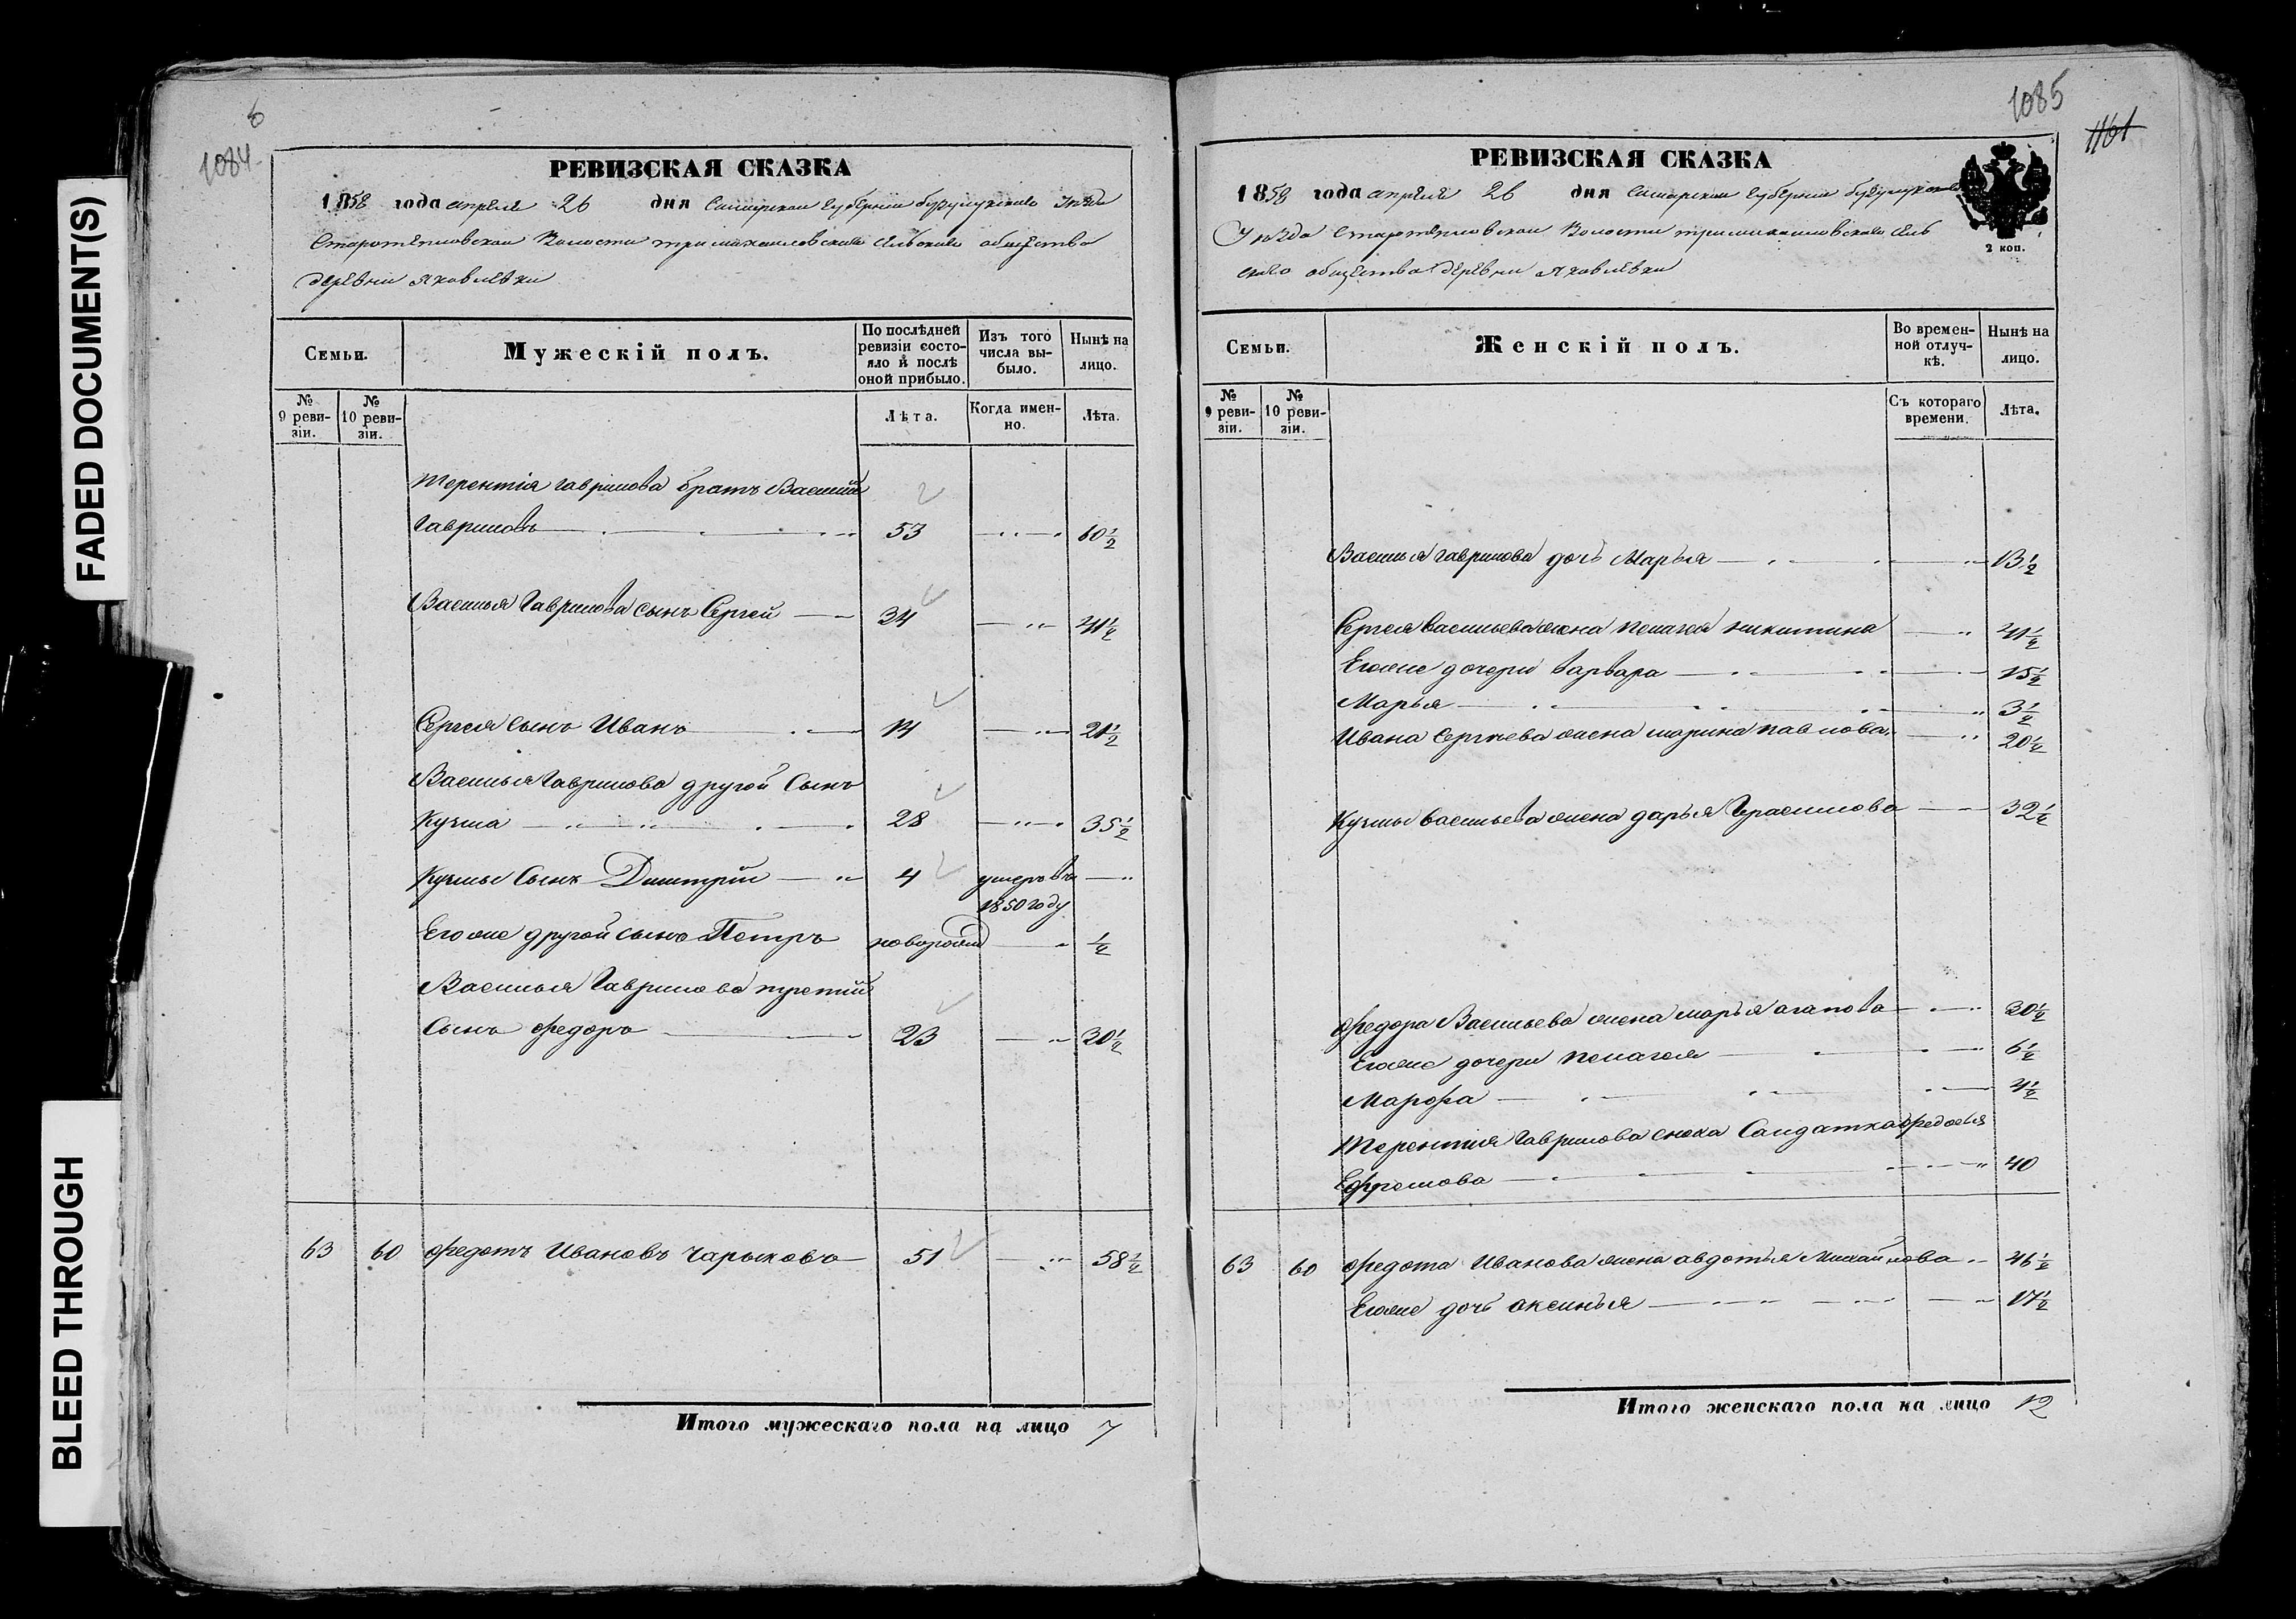 FADED DOCUMENT(S)
BLEED THROUGH
6
1084
РЕВИЗСКАЯ СКАЗКА
1858 года апреля 26 дня Самарской губернии бузулукского Уезда
Старотепловской Волости тримихаиловского сельского общества
деревни яковлевки
Семьи.
Мужескій полъ.
По послѣдней ревизіи состояло и послѣ оной прибыло.
Изъ того числа выбыло.
Нынѣ на лицо.
№ 9 ревизіи.
№ 10 ревизіи.
Лѣта.
Когда именно.
Лѣта.
терентія гаврилова братъ Василий
гавриловъ 53 60 1/2
Василья Гаврилова сынъ Сергей 34 41 1/2
Сергея сынъ Иванъ 14 21 1/2
Василья Гаврилова другой Сынъ
Кузма 28 35 1/2
Кузмы Сынъ Дмитрий 4 умеръ въ
1850 году
Егоже другой сынъ Петръ новорожд 1/2
Василья Гаврилова третий
Сынъ федоръ 23 30 1/2
63 60 федотъ Ивановъ Чарыковъ 51 58 1/2
Итого мужескаго пола на лицо 7
1085
1161
РЕВИЗСКАЯ СКАЗКА
1858 года апреля 26 дня Самарской губернии бузулукского
Уезда Старотепловской Волости тримихаиловского сель
ского общества деревни яковлевки
2 коп.
Семьи.
Женскій полъ.
Во временной отлучкѣ.
Нынѣ на лицо.
№ 9 ревизіи.
№ 10 ревизіи.
Съ котораго времени.
Лѣта.
Василья гаврилова дочь Марья 13 1/2
Сергея васильева жена пелагея никитина 41 1/2
Егоже дочери варвара 15 1/2
Марья 3 1/2
Ивана Сергеева жена марина павлова 20 1/2
Кузмы васильева жена дарья Герасимова 32 1/2
федора Васильева жена марья агапова 30 1/2
Егоже дочери пелагея 6 1/2
Марфа 4 1/2
терентия Гаврилова сноха Салдатка федосья
Ефремова 40
63 60 федота Иванова жена авдотья Михайлова 46 1/2
Егоже дочь аксинья 17 1/2
Итого женскаго пола на лицо 12